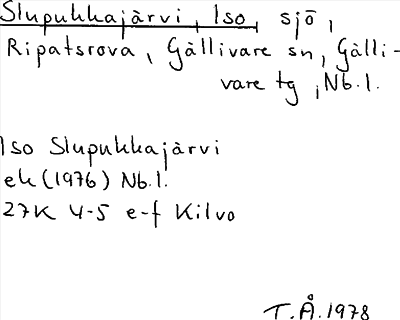 Slupukkajärvi, Iso, sjö,
Ripatsrova, Gällivare sn, Gälli-
vare tg, Nb.l.
Iso Slupukkajärvi
ek (1976) Nb.l.
27K 4-5 e-f Kilvo
T.Å. 1978